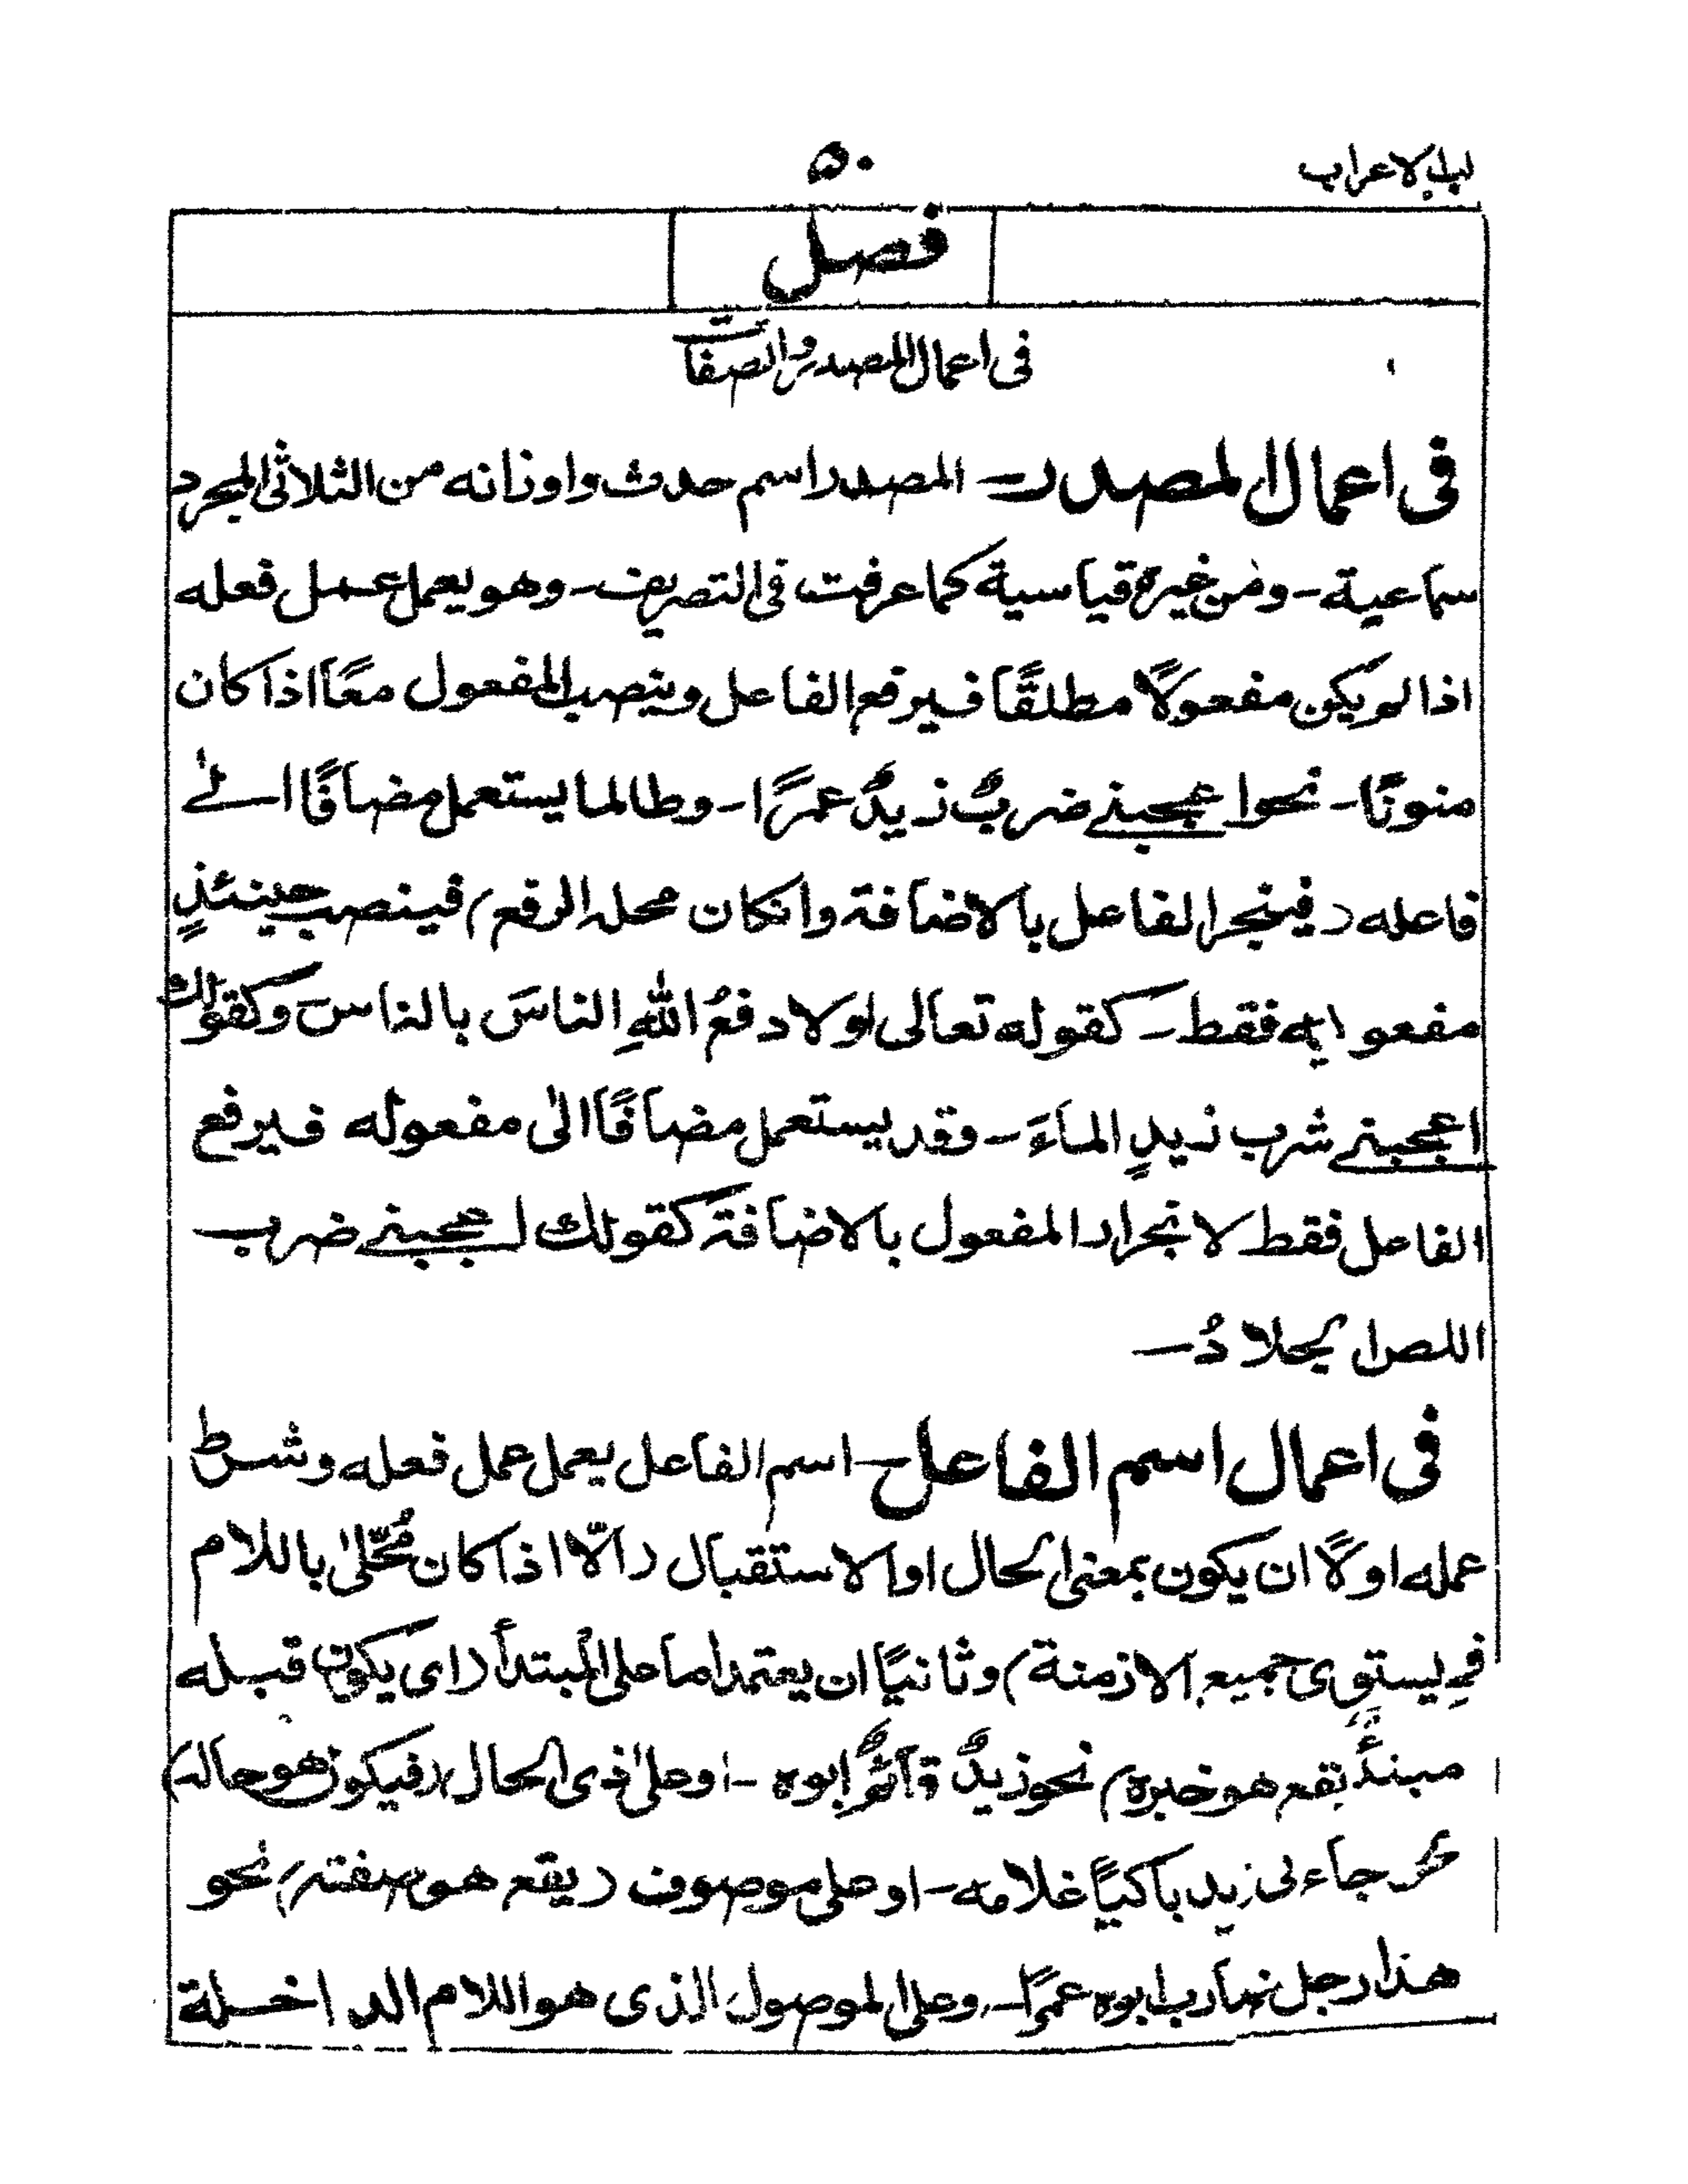 لب الاعراب
۵۰
فصل
فی اعمال المصدر والصفات
فی اعمال المصدر۔ المصدر اسم حدث واوزانه من الثلاثی المجرد
سماعیة۔ ومن غیره قیاسیة کما عرفت فی التصریف۔ وهو یعمل عمل فعله
اذا لم یکن مفعولًا مطلقًا فیرفع الفاعل وینصب المفعول معًا اذا کان
منونًا۔ نحو اعجبنے ضربٌ زیدٌ عمرًا۔ وطالما یستعمل مضافًا الےٰ
فاعله (فینجر الفاعل بالاضافة وانکان محله الرفع) فینصب حینئذٍ
مفعولا به فقط۔ کقوله تعالی لولا دفعُ اللهِ الناسَ بالناس وکقولك
اعجبنے شرب زیدٍ الماءَ۔ وقد یستعمل مضافًا الیٰ مفعوله فیرفع
الفاعل فقط لانجرار المفعول بالاضافة کقولك اعجبنے ضرب
اللص الجلادُ۔
فی اعمال اسم الفاعل۔ اسم الفاعل یعمل عمل فعله وشرط
عمله اولًا ان یکون بمعنی الحال او الاستقبال (الّا اذا کان مُحَلّیٰ باللام
فیستوی جمیع الازمنة) وثانیًا ان یعتمد اما علی المبتدأ (ای یکون قبله
مبتدأٌ یقع هو خبره) نحو زیدٌ قآئمٌ ابوه۔ او علیٰ ذی الحال (فیکون هو حاله)
نحو جاءنی زید باکیًا غلامه۔ او علی موصوف (یقع هو صفته) نحو
هذا رجل ضارب ابوه عمرًا۔ وعلی الموصول الذی هو اللام الداخلة